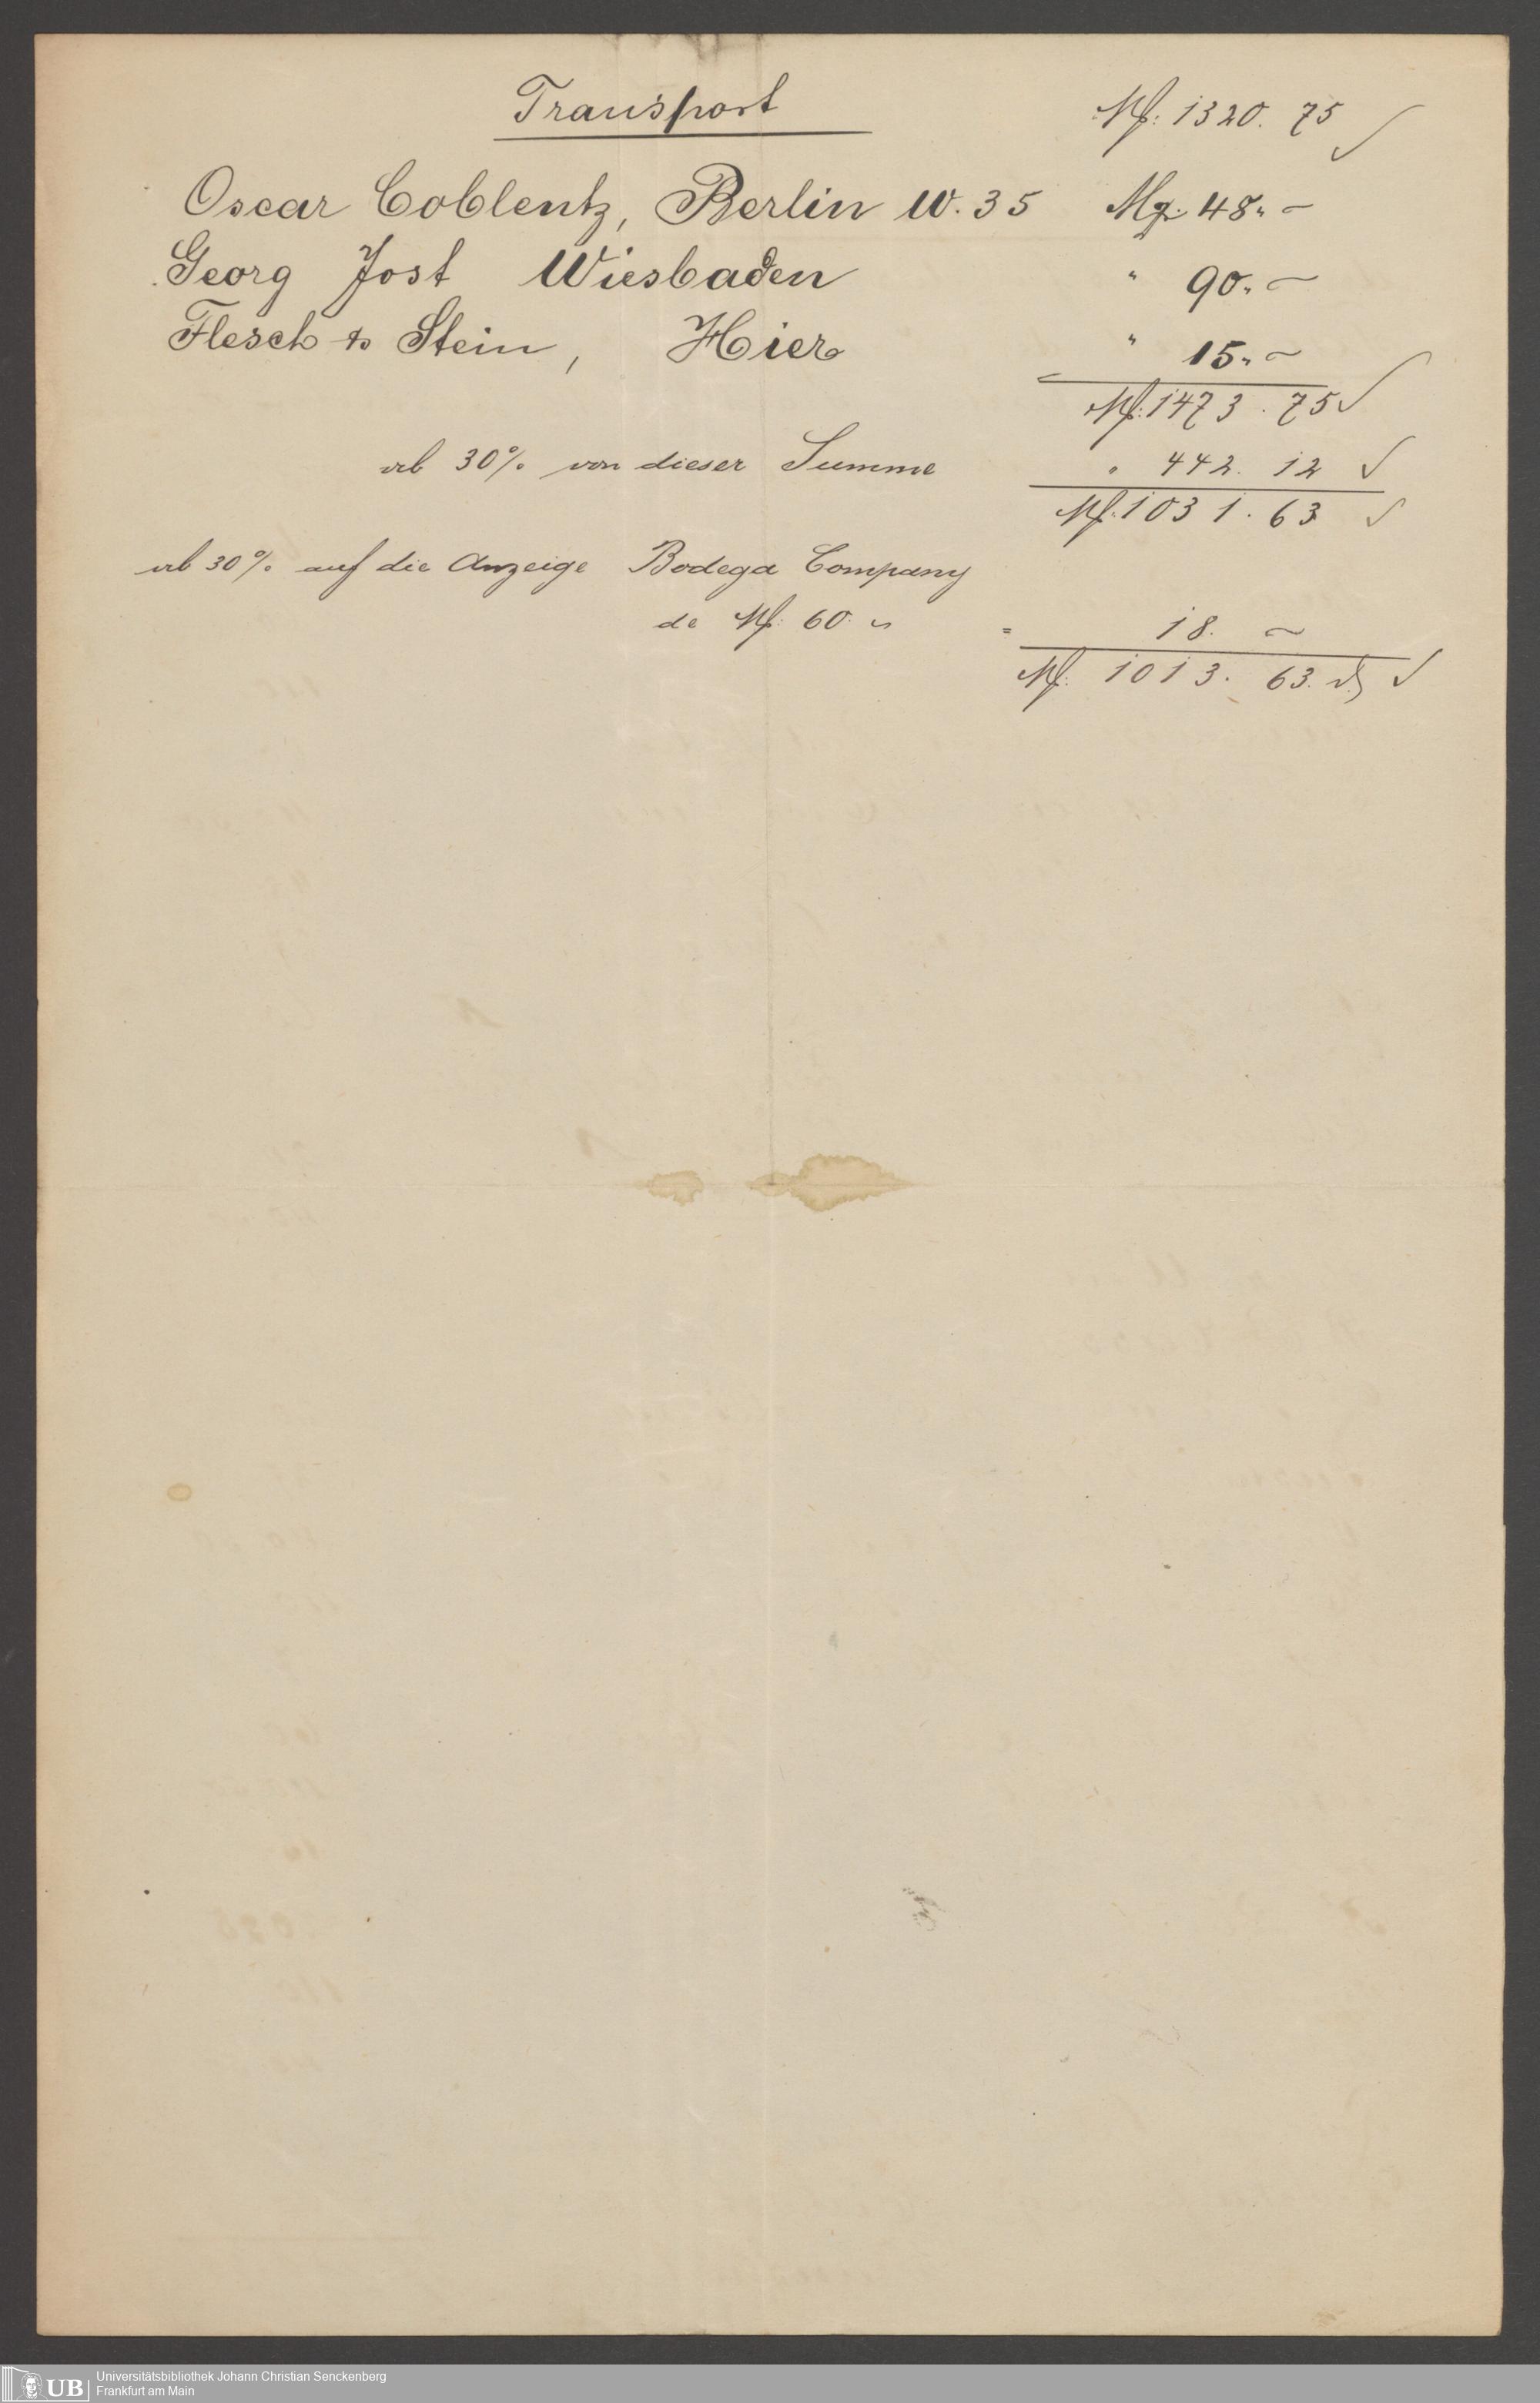 Transport M: 1320. 75
Oscar Coblentz, Berlin W. 35 M: 48. -
Georg Jost Wiesbaden " 90. -
Flesch & Stein, Hier " 15. -
M: 1473. 75
ab 30% von dieser Summe " 442. 12
M: 1031. 63
ab 30% auf die Anzeige Bodega Company
de M: 60. - = 18. -
M: 1013. 63.
UB Universitätsbibliothek Johann Christian Senckenberg
Frankfurt am Main